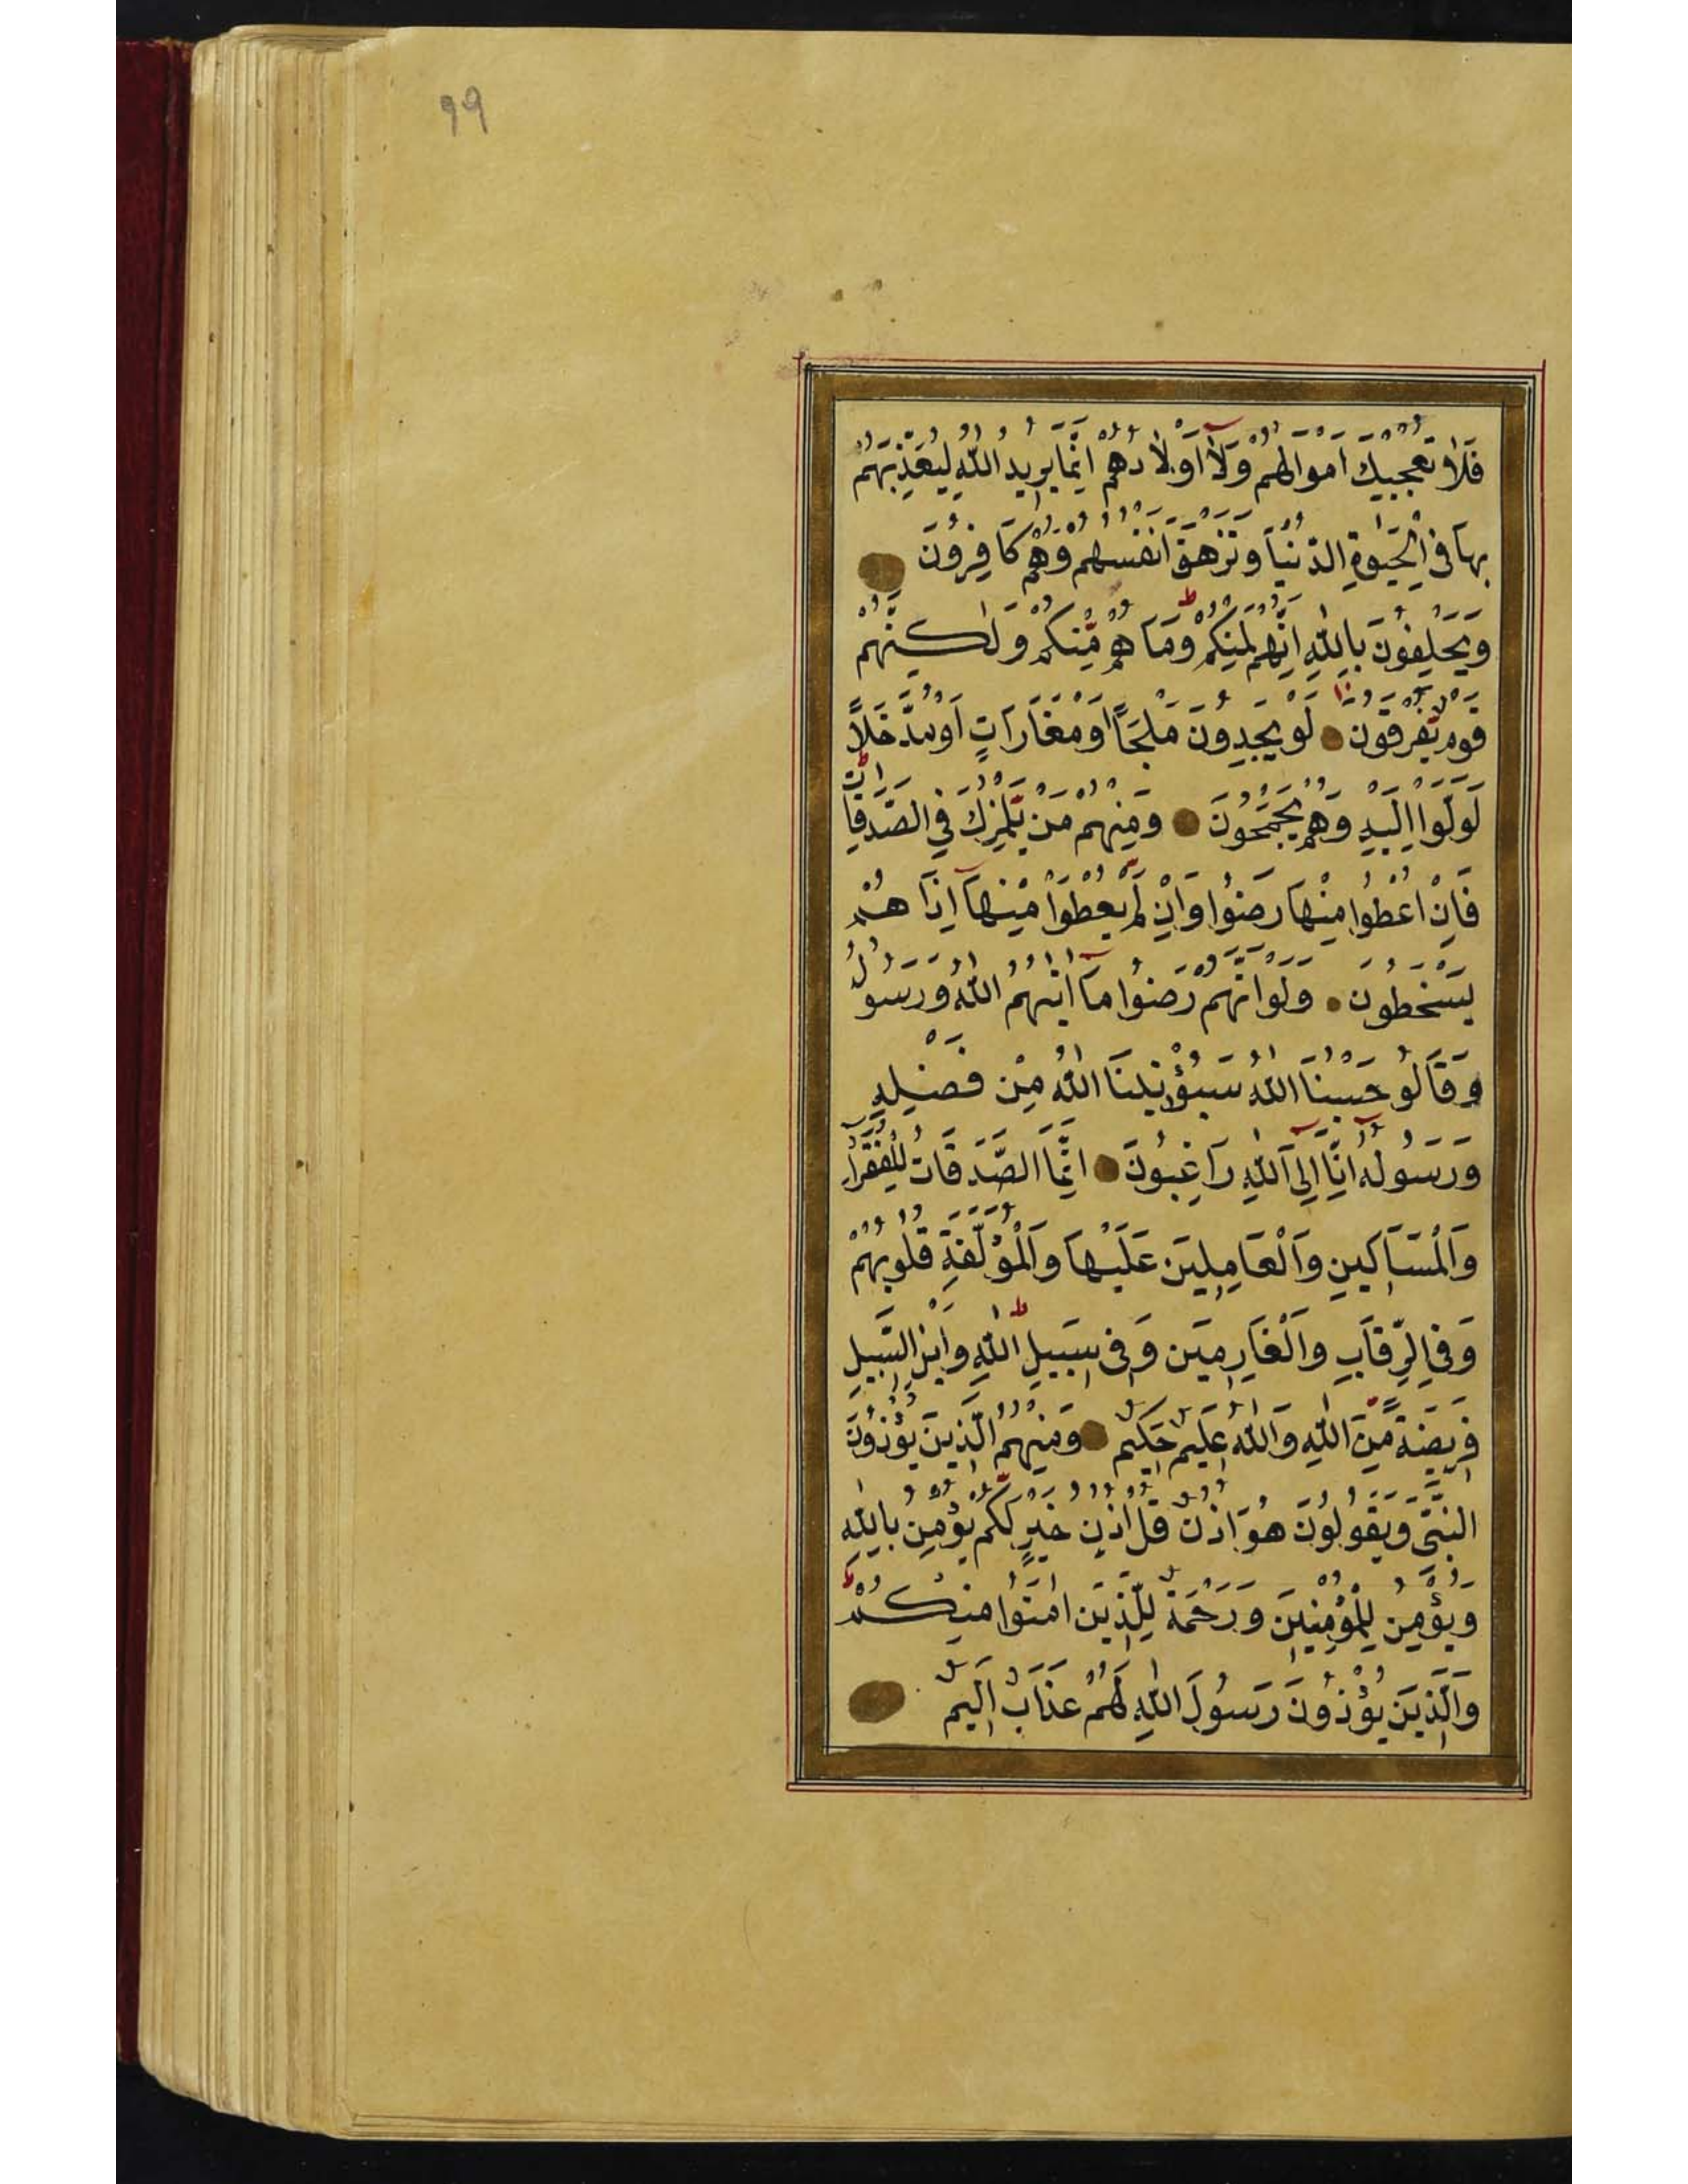 ٩٩
فَلَا تُعْجِبْكَ اَمْوَالُهُمْ وَلَآ اَوْلَادُهُمْ اِنَّمَا يُرِيدُ اللّٰهُ لِيُعَذِّبَهُمْ
بِهَا فِى الْحَيٰوةِ الدُّنْيَا وَتَزْهَقَ اَنْفُسُهُمْ وَهُمْ كَافِرُونَ
وَيَحْلِفُونَ بِاللّٰهِ اِنَّهُمْ لَمِنْكُمْ ط وَمَا هُمْ مِنْكُمْ وَلٰكِنَّهُمْ
قَوْمٌ يَفْرَقُونَ لَوْ يَجِدُونَ مَلْجَأً اَوْ مَغَارَاتٍ اَوْ مُدَّخَلًا
لَوَلَّوْا اِلَيْهِ وَهُمْ يَجْمَحُونَ وَمِنْهُمْ مَنْ يَلْمِزُكَ فِي الصَّدَقَاتِ ط
فَاِنْ اُعْطُوا مِنْهَا رَضُوا وَاِنْ لَمْ يُعْطَوْا مِنْهَآ اِذَا هُمْ
يَسْخَطُونَ وَلَوْ اَنَّهُمْ رَضُوا مَآ اٰتٰيهُمُ اللّٰهُ وَرَسُولُهُ
وَقَالُوا حَسْبُنَا اللّٰهُ سَيُؤْتِينَا اللّٰهُ مِنْ فَضْلِهِ
وَرَسُولُهُ اِنَّآ اِلَى اللّٰهِ رَاغِبُونَ اِنَّمَا الصَّدَقَاتُ لِلْفُقَرَآءِ
وَالْمَسَاكِينِ وَالْعَامِلِينَ عَلَيْهَا وَالْمُؤَلَّفَةِ قُلُوبُهُمْ
وَفِي الرِّقَابِ وَالْغَارِمِينَ وَفِى سَبِيلِ اللّٰهِ وَابْنِ السَّبِيلِ ط
فَرِيضَةً مِنَ اللّٰهِ وَاللّٰهُ عَلِيمٌ حَكِيمٌ وَمِنْهُمُ الَّذِينَ يُؤْذُونَ
النَّبِىَّ وَيَقُولُونَ هُوَ اُذُنٌ قُلْ اُذُنُ خَيْرٍ لَكُمْ يُؤْمِنُ بِاللّٰهِ
وَيُؤْمِنُ لِلْمُؤْمِنِينَ وَرَحْمَةٌ لِلَّذِينَ اٰمَنُوا مِنْكُمْ ط
وَالَّذِينَ يُؤْذُونَ رَسُولَ اللّٰهِ لَهُمْ عَذَابٌ اَلِيمٌ